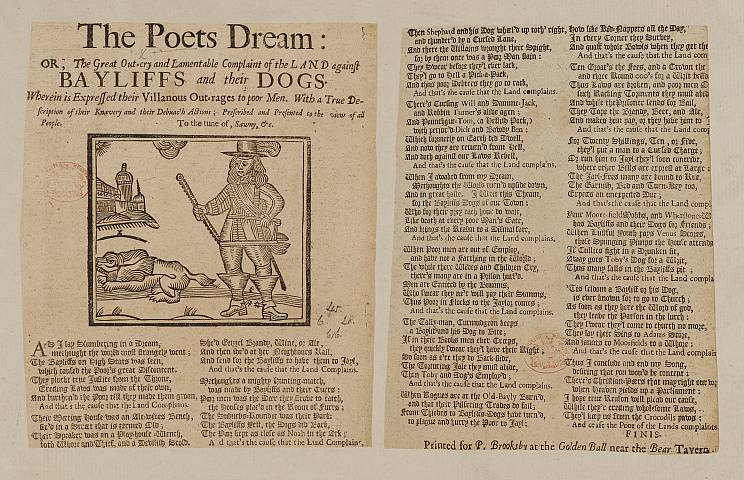 The Poets Dream:
OR, The Great Out-cry and Lamentable Complaint of the LAND against
BAYLIFFS and their DOGS.
Wherein is Expressed their Villanous Out-rages to poor Men. With a True De-
scription of their Knavery and their Debauch'd Actions; Prescribed and Presented to the view of all
People.
To the tune of, Sawny, &c.
AS I lay Slumbering in a Dream,
methought the world most strangely went;
The Bayliffs on High Seats was seen,
which caused the Poor's great Discontent.
They pluckt true Justice from the Throne,
Erecting Laws was made of their own,
And burthen'd the Poor till they made them groan,
And that's the cause that the Land Complains.
Their Meeting House was an Ale-wives Bench,
Their Speaker was an Play-house-Wench,
both Whore and Thief, and a Devilish Scold.
She'd Brandy, Wine, or Ale,
And then she'd at her Neighbours Rail,
And send for the Bayliffs to have them to Jayl,
And that's the cause that the Land Complains.
Methoughts a mighty Punning match,
was made by Bayliffs and their Curs
Poor men was the they strove to catch,
The Bayliffs Fell, the Dogs did Bark,
The kept as close as Noah in the Ark;
And that's the cause that the Land Complains.
Then Shepherd and his Dog wheel'd up toth' right,
and thunder'd by a Cursed Lane,
And there the Villains wrought their Spight,
for by them once was a Poor Man slain:
They Swear before they'l ever lack,
They'l go to Hell a Pick-a-Pack,
And thus poor Debters they go to rack,
And that's the cause that the Land complains.
There's Cursing Will and Damme-Jack,
and Robbin Turner's alive agen;
And Punchgut-Tom, or Devilish Poch,
with perjur'd Dick and Bawdy Ben:
Which schmerly on Earth did Dwell,
And now they are return'd from Hell,
And both against our Laws Rebell,
And that's the cause that the Land complains.
When I awaked from my Dream,
Methoughts the World turn'd upside down,
And in great haste, I Writ this Theam,
for the Bayliffs Dogs of our Town:
Who for their prey each hour do wait,
Like death at every poor Man's Gate,
And brings the Realm to a Dismal state,
And that's the cause that the Land complains.
When Poor men are out of Employ,
and have not a Farthing in the World;
The while their Wives and Children Cry,
there's many are in a Prison hurl'd.
Men are Enticed by the Bumms,
Who swear they ne'r will pay their Summs,
Thus Poor in flocks to the Jaylor comes;
And that's the cause that the Land complains.
The Tally-man, Curmudgeon keeps
a Bayliff and his Dog to bite;
If in their Books men ever Creeps,
they quickly swear they'l have their Right;
So soon as e're they to Back-slide,
The Cantering Jade they must abide,
Then Toby and Dogs Employ'd;
And that's the cause that the Land complains.
When Rogues are at the Old-Bayly Burn'd,
and that their Pilfering Trades do fail;
From Thieves to Bayliffs-Dogs have turn'd,
to plague and hurry the Poor to Jayl;
Now like Bad-Nappers all the Day,
In every Corner they Survey,
And quaff whole Bowls when they get the
And that's the cause that the Land com
Ten Groat's the Fees, and a Crown the
and three Round ooo's for a Writ
Thus Laws are broken, and poor men
such Racking Torments they must abi
And while the Prisoner sends for Bail,
They Tope the Brandy, Beer, and Ale,
And makes him pay, or they'l have him to
And that's the cause that the Land com
For Twenty Shillings, Ten, or Five,
they'l put a man to a Cursed Charge;
Or run him to Jayl they'l soon contrive,
where other Bills are exprest at Large:
The Jayl-Fees many are bound to Rue,
The Garnish, Bed and Turn-Key too,
Expects an unexpected Due;
And that's the cause that the Land complai
Your Moor-field Mobbs, and Whetstone-W
has Bayliffs and their Dogs for Friends;
When Lustful Youth pays Venus Scores,
whole Spunging Pimps the House attends
If Cullies fight in a Drunken fit,
Away goes Toby's Dog for a Writ,
Thus many falls in the Bayliffs pit;
And that's the cause that the Land compla
'Tis seldom a Bayliff or his Dog,
is ever known for to go to Church;
As soon as they here the Word of God,
they leave the Parson in the lurch:
They swear they'l come to church no more,
They say their Sins to Adams Score,
And jaunts to Moorfields to a Whore;
And that's the cause that the Land complain
Thus I conclude and end my Song,
desiring that you won'd be content;
There's Christian-Peers that may right our wr
when Heaven yields up a Parliament;
I hope true Reason will place our Laws,
While they're creating wholesome Laws,
They'l keep us from the Crocodils paws;
And cease the Poor of the Lands complaints.
FINIS.
Printed for P. Brooksby at the Golden Ball near the Bear Tavern